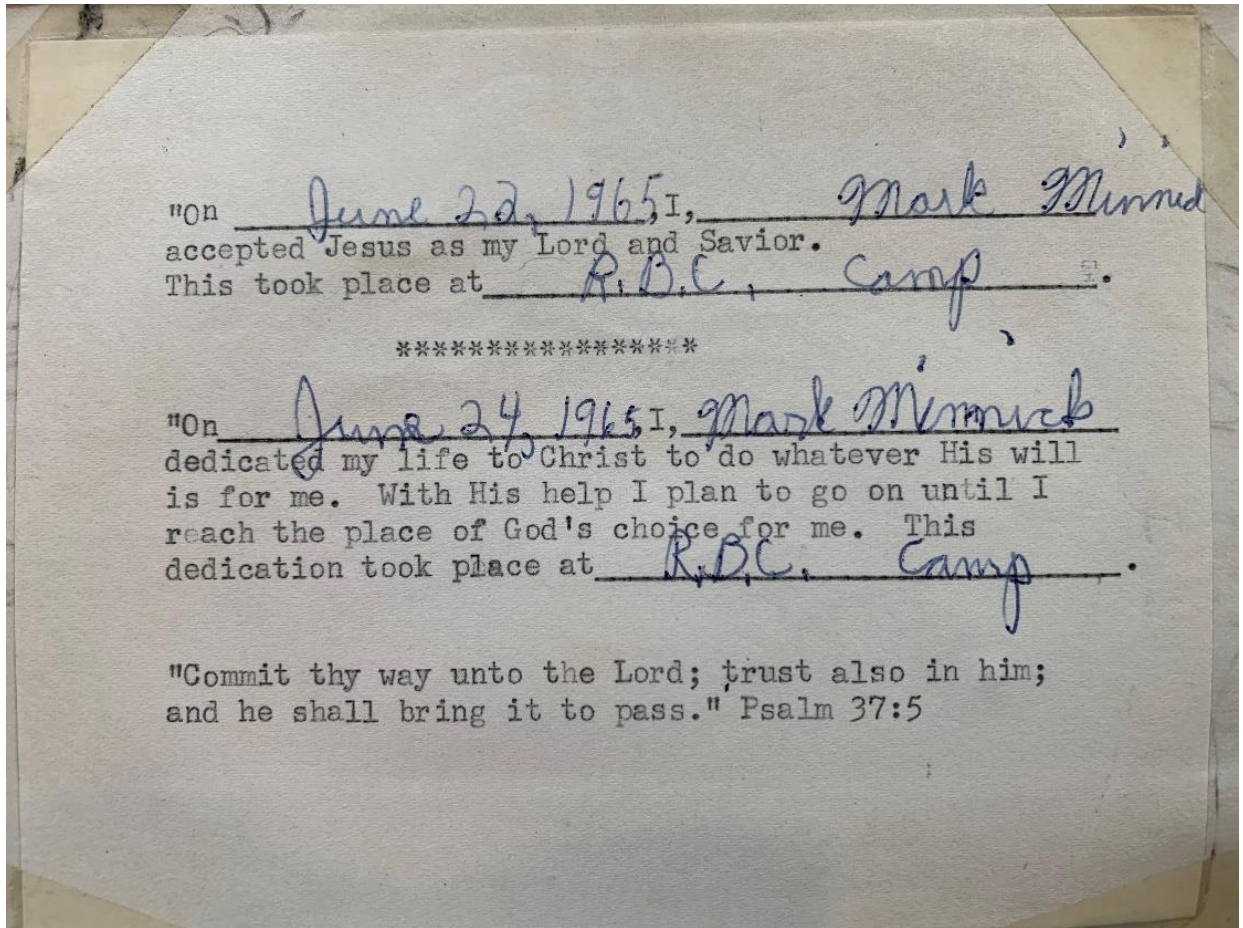 "On June 22, 1965, I, Mark Minnick
accepted Jesus as my Lord and Savior.
This took place at R.B.C. Camp.
*****************
"On June 24, 1965, I, Mark Minnick
dedicated my life to Christ to do whatever His will
is for me. With His help I plan to go on until I
reach the place of God's choice for me. This
dedication took place at R.B.C. Camp.
"Commit thy way unto the Lord; trust also in him;
and he shall bring it to pass." Psalm 37:5